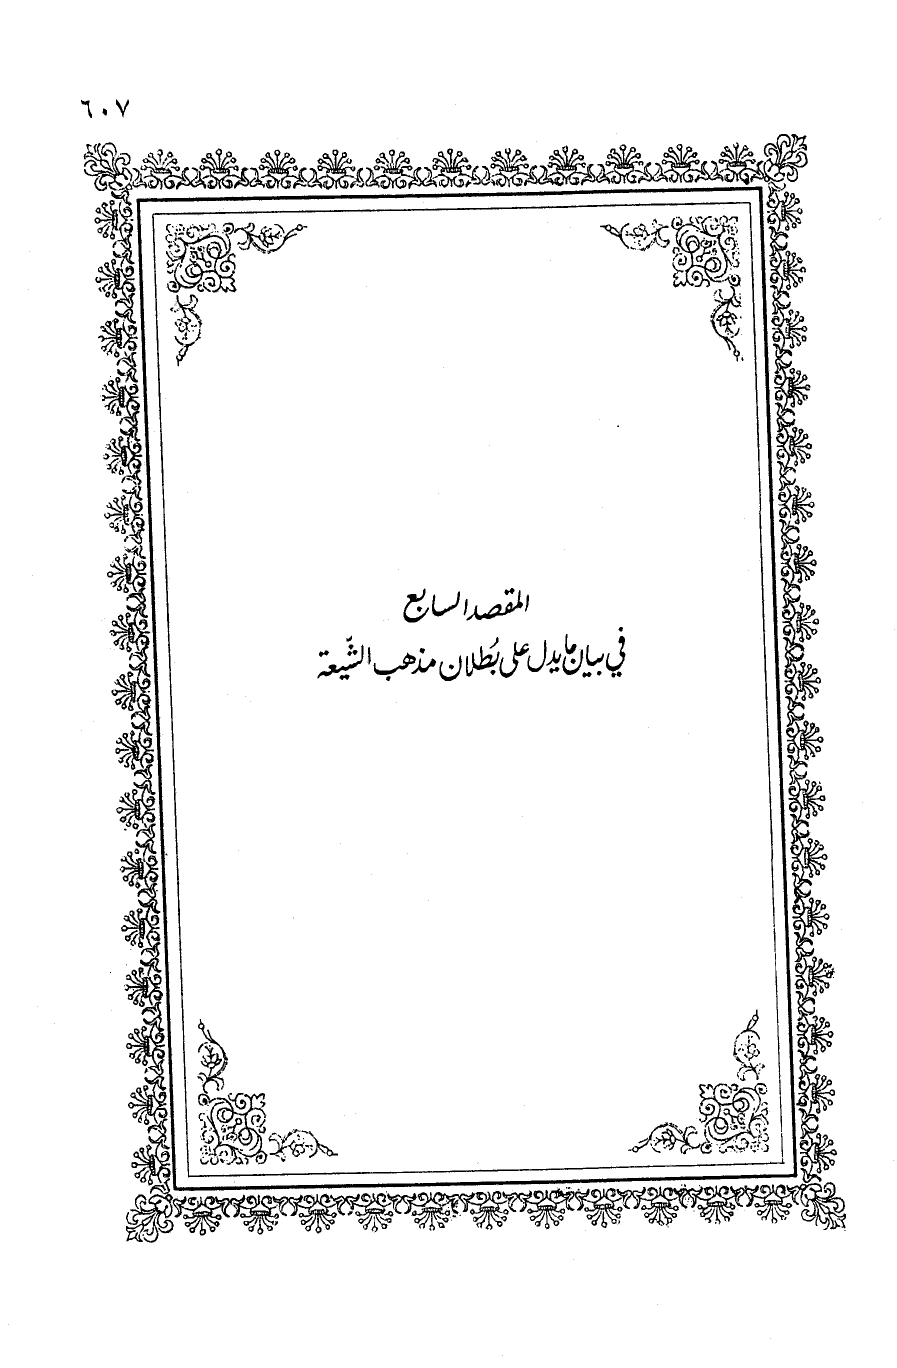 ٦٠٧
المقصد السابع
في بيان ما يدل على بُطلان مذهب الشّيعة